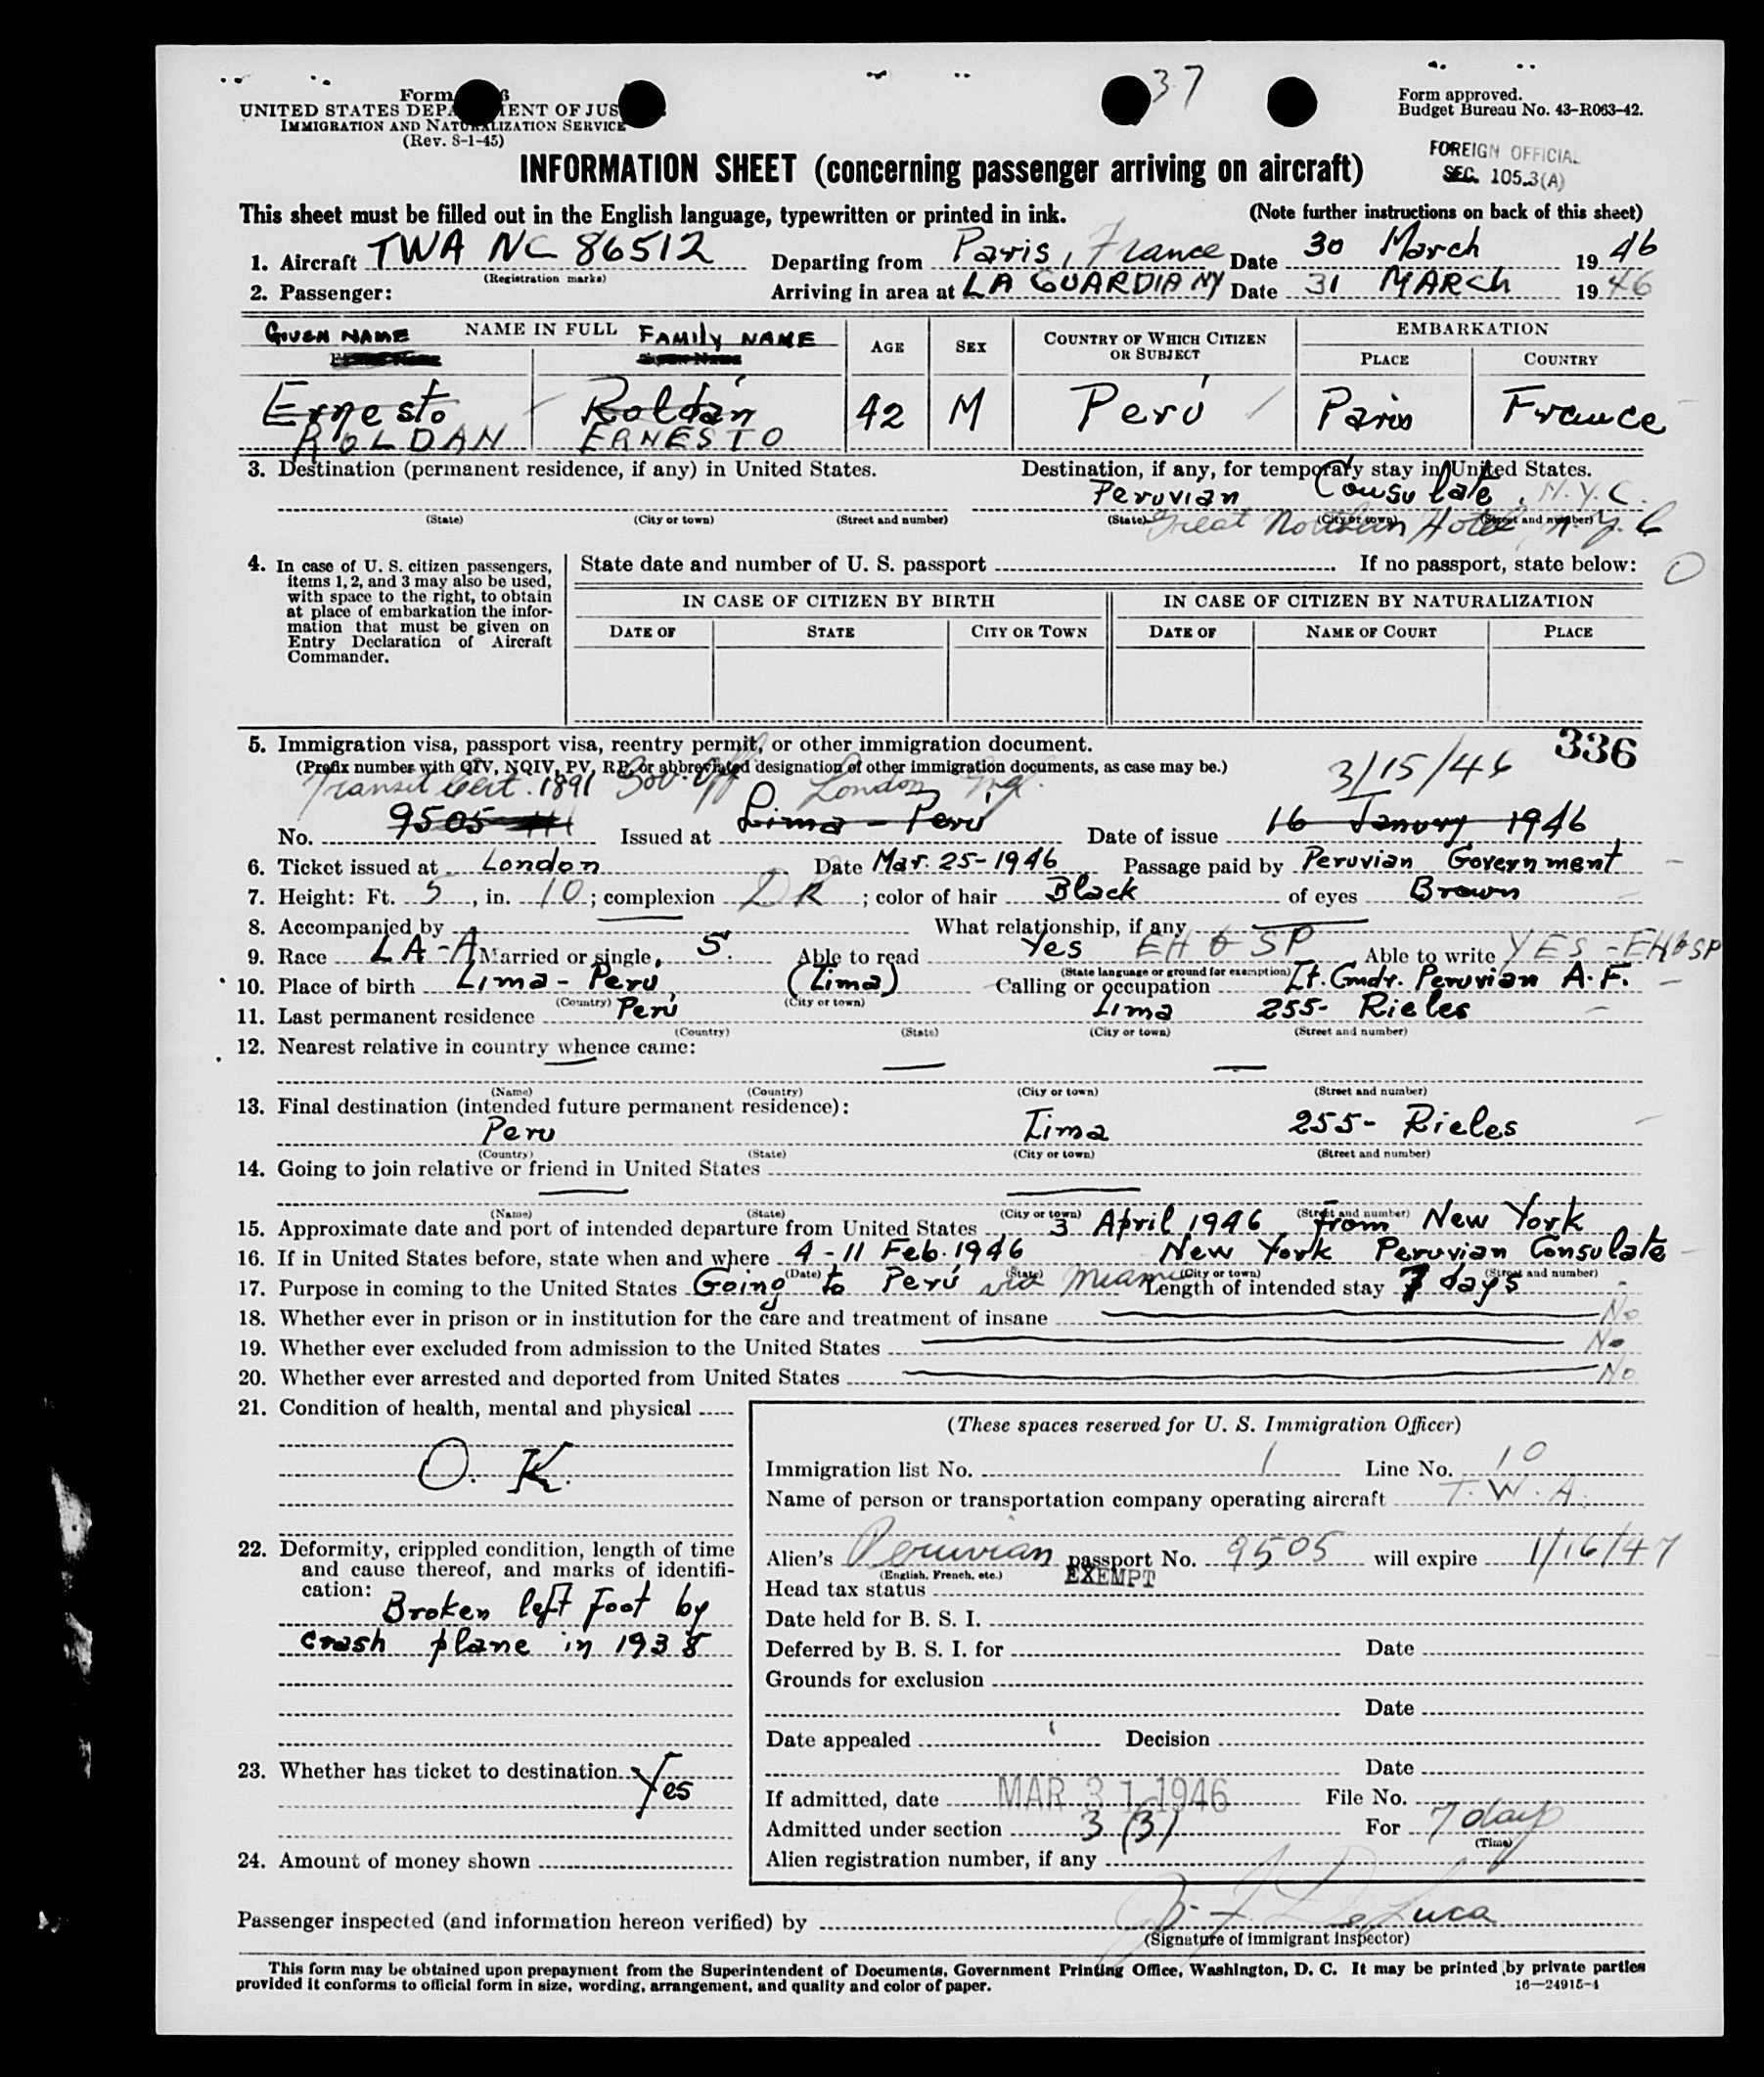 37
Form approved.
UNITED STATES DEPARTMENT OF JUSTICE
Budget Bureau No. 43-R063-42.
IMMIGRATION AND NATURALIZATION SERVICE
(Rev. 8-1-45)
FOREIGN OFFICIAL
SEC. 105.3(A)
INFORMATION SHEET (concerning passenger arriving on aircraft)
This sheet must be filled out in the English language, typewritten or printed in ink. (Note further instructions on back of this sheet)
1. Aircraft TWA NC 86512 Departing from Paris, France Date 30 March 1946
(Registration marks)
2. Passenger: Arriving in area at LA GUARDIA NY Date 31 MARCH 1946
GIVEN NAME NAME IN FULL FAMILY NAME AGE SEX COUNTRY OF WHICH CITIZEN OR SUBJECT EMBARKATION
PLACE COUNTRY
Ernesto Roldán 42 M Perú Paris France
ROLDAN ERNESTO
3. Destination (permanent residence, if any) in United States. Destination, if any, for temporary stay in United States.
Peruvian Consulate, N.Y.C.
(State) (City or town) (Street and number) (State) (City or town) (Street and number)
Great Northern Hotel N.Y.C
4. In case of U. S. citizen passengers, items 1, 2, and 3 may also be used, with space to the right, to obtain at place of embarkation the information that must be given on Entry Declaration of Aircraft Commander.
State date and number of U. S. passport If no passport, state below:
IN CASE OF CITIZEN BY BIRTH IN CASE OF CITIZEN BY NATURALIZATION
DATE OF STATE CITY OR TOWN DATE OF NAME OF COURT PLACE
336
5. Immigration visa, passport visa, reentry permit, or other immigration document.
(Prefix number with QIV, NQIV, PV, RP, or abbreviated designation of other immigration documents, as case may be.)
Transit Cert. 1891 Gov. Off London Eng. 3/15/46
No. 9505 Issued at Lima - Perú Date of issue 16 Janury 1946
6. Ticket issued at London Date Mar. 25-1946 Passage paid by Peruvian Government
7. Height: Ft. 5, in. 10; complexion DK; color of hair Black of eyes Brown
8. Accompanied by What relationship, if any
9. Race LA-A Married or single, S. Able to read Yes EH & SP Able to write YES - EH & SP
(State language or ground for exemption)
10. Place of birth Lima - Perú (Lima) Calling or occupation Lt. Cmdr. Peruvian A.F.
(Country) (City or town)
11. Last permanent residence Perú Lima 255- Rieles
(Country) (State) (City or town) (Street and number)
12. Nearest relative in country whence came:
(Name) (Country) (City or town) (Street and number)
13. Final destination (intended future permanent residence):
Peru Lima 255- Rieles
(Country) (State) (City or town) (Street and number)
14. Going to join relative or friend in United States
(Name) (State) (City or town) (Street and number)
15. Approximate date and port of intended departure from United States 3 April 1946 from New York
16. If in United States before, state when and where 4-11 Feb. 1946 New York Peruvian Consulate
(Date) (State) (City or town) (Street and number)
17. Purpose in coming to the United States Going to Perú via Miami Length of intended stay 7 days
18. Whether ever in prison or in institution for the care and treatment of insane No
19. Whether ever excluded from admission to the United States No
20. Whether ever arrested and deported from United States No
21. Condition of health, mental and physical
O. K.
22. Deformity, crippled condition, length of time and cause thereof, and marks of identification:
Broken left foot by
crash plane in 1938
23. Whether has ticket to destination Yes
24. Amount of money shown
(These spaces reserved for U. S. Immigration Officer)
Immigration list No. 1 Line No. 10
Name of person or transportation company operating aircraft T.W.A.
Alien's Peruvian passport No. 9505 will expire 1/16/47
(English, French, etc.)
Head tax status EXEMPT
Date held for B. S. I.
Deferred by B. S. I. for Date
Grounds for exclusion
Date
Date appealed Decision
Date
If admitted, date MAR 31 1946 File No.
Admitted under section 3 (3) For 7 days
(Time)
Alien registration number, if any
Passenger inspected (and information hereon verified) by De Luca
(Signature of immigrant inspector)
This form may be obtained upon prepayment from the Superintendent of Documents, Government Printing Office, Washington, D. C. It may be printed by private parties
provided it conforms to official form in size, wording, arrangement, and quality and color of paper. 16—24915-1